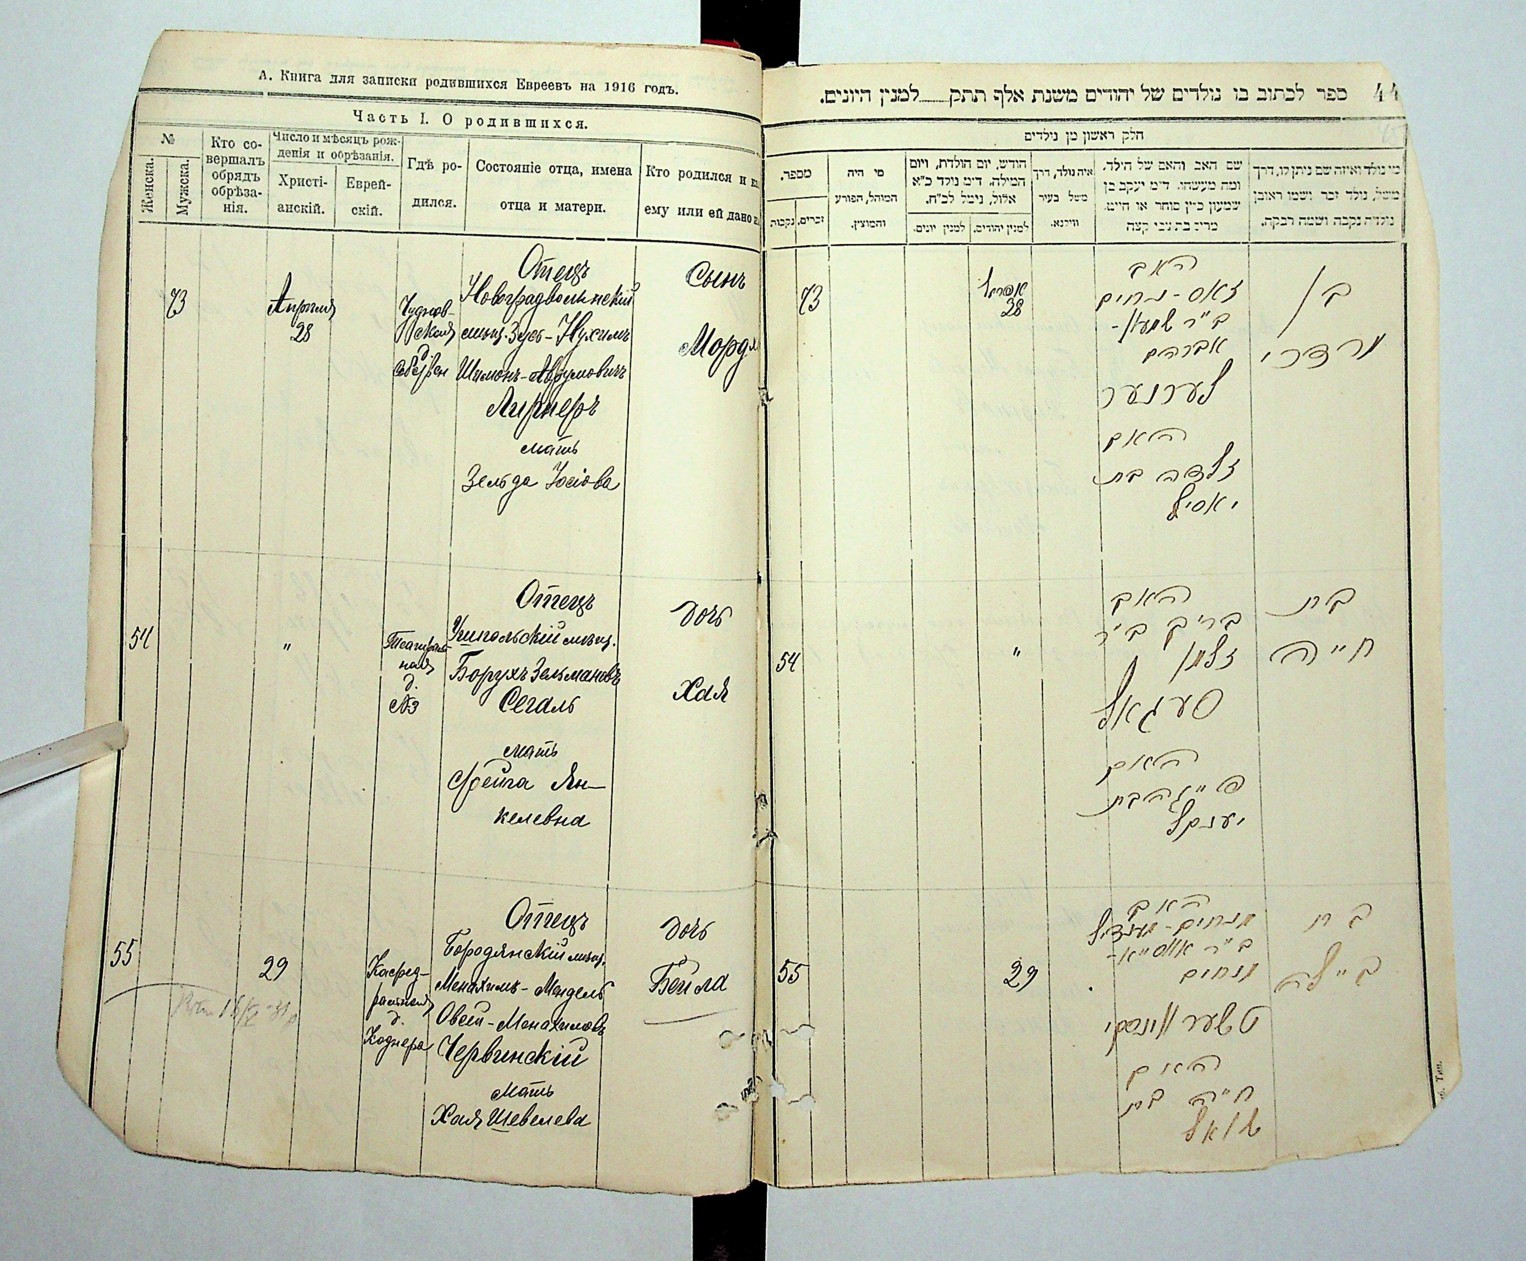 А. Книга для записки родившихся Евреевъ на 1916 годъ.
Часть I. О родившихся.
№
Женска.
Мужска.
Кто со-
вершалъ
обрядъ
обрѣза-
нія.
Число и мѣсяцъ рож-
денія и обрѣзанія.
Христі-
анскій.
Еврей-
скій.
Гдѣ ро-
дился.
Состояніе отца, имена
отца и матери.
Кто родился и
ему или ей дано
73
Апрѣля
28
Отецъ
Новоградволынскій
мѣщ. Зусь-Нухимъ
Шимонъ-Аврумовичъ
Лирнеръ
мать
Зельда Іосіова
Сынъ
54
"
Театраль
ная
д.
№3
Отецъ
мѣщ.
Борухъ Зельмановъ
Сегаль
мать
Фейга Ян-
келевна
дочь
Хая
55
29
д.
Коднера
Отецъ
Бородянскій мѣщ.
Менахимъ-Мендель
Овсій-Менахимовъ
Червинскій
мать
Хая Шевелева
дочь
Бейла
ספר לכתוב בו נולדים של יהודים משנת אלף תתק למנין היונים.
44
חלק ראשון מן נולדים
מספר.
זכרים.
נקבות
מי היה
המוהל, הפורע
והמוצץ.
חודש, יום הולדת, ויום
המילה. ד״מ נולד כ״א
אלול, נימל לכ״ח.
למנין יהודים.
למנין יונים.
איה נולד, דרך
משל בעיר
ווילנא.
שם האב והאם של הילד.
ומה מעשהו. ד״מ יעקב בן
שמעון כ״ץ סוחר או חייט.
מרים בת צבי קצה
מי נולד ואיזה שם ניתן לו, דרך
משל, נולד זכר ושמו ראובן
נולדה נקבה ושמה רבקה.
73
אפריל
28
האב
זאס-נחים
ב״ר שמעון-
אברהם
לערנער
האם
זלדה בת
יאסיל
בן
מרדכי
54
"
האב
בריך ב״ר
זלמן
סעגאל
האם
פייגה בת
יענקל
בת
חייה
55
29
האב
מנחים-מענדיל
מנחים
טשערווינסקי
האם
חיה בת
שוואל
בת
ביילה